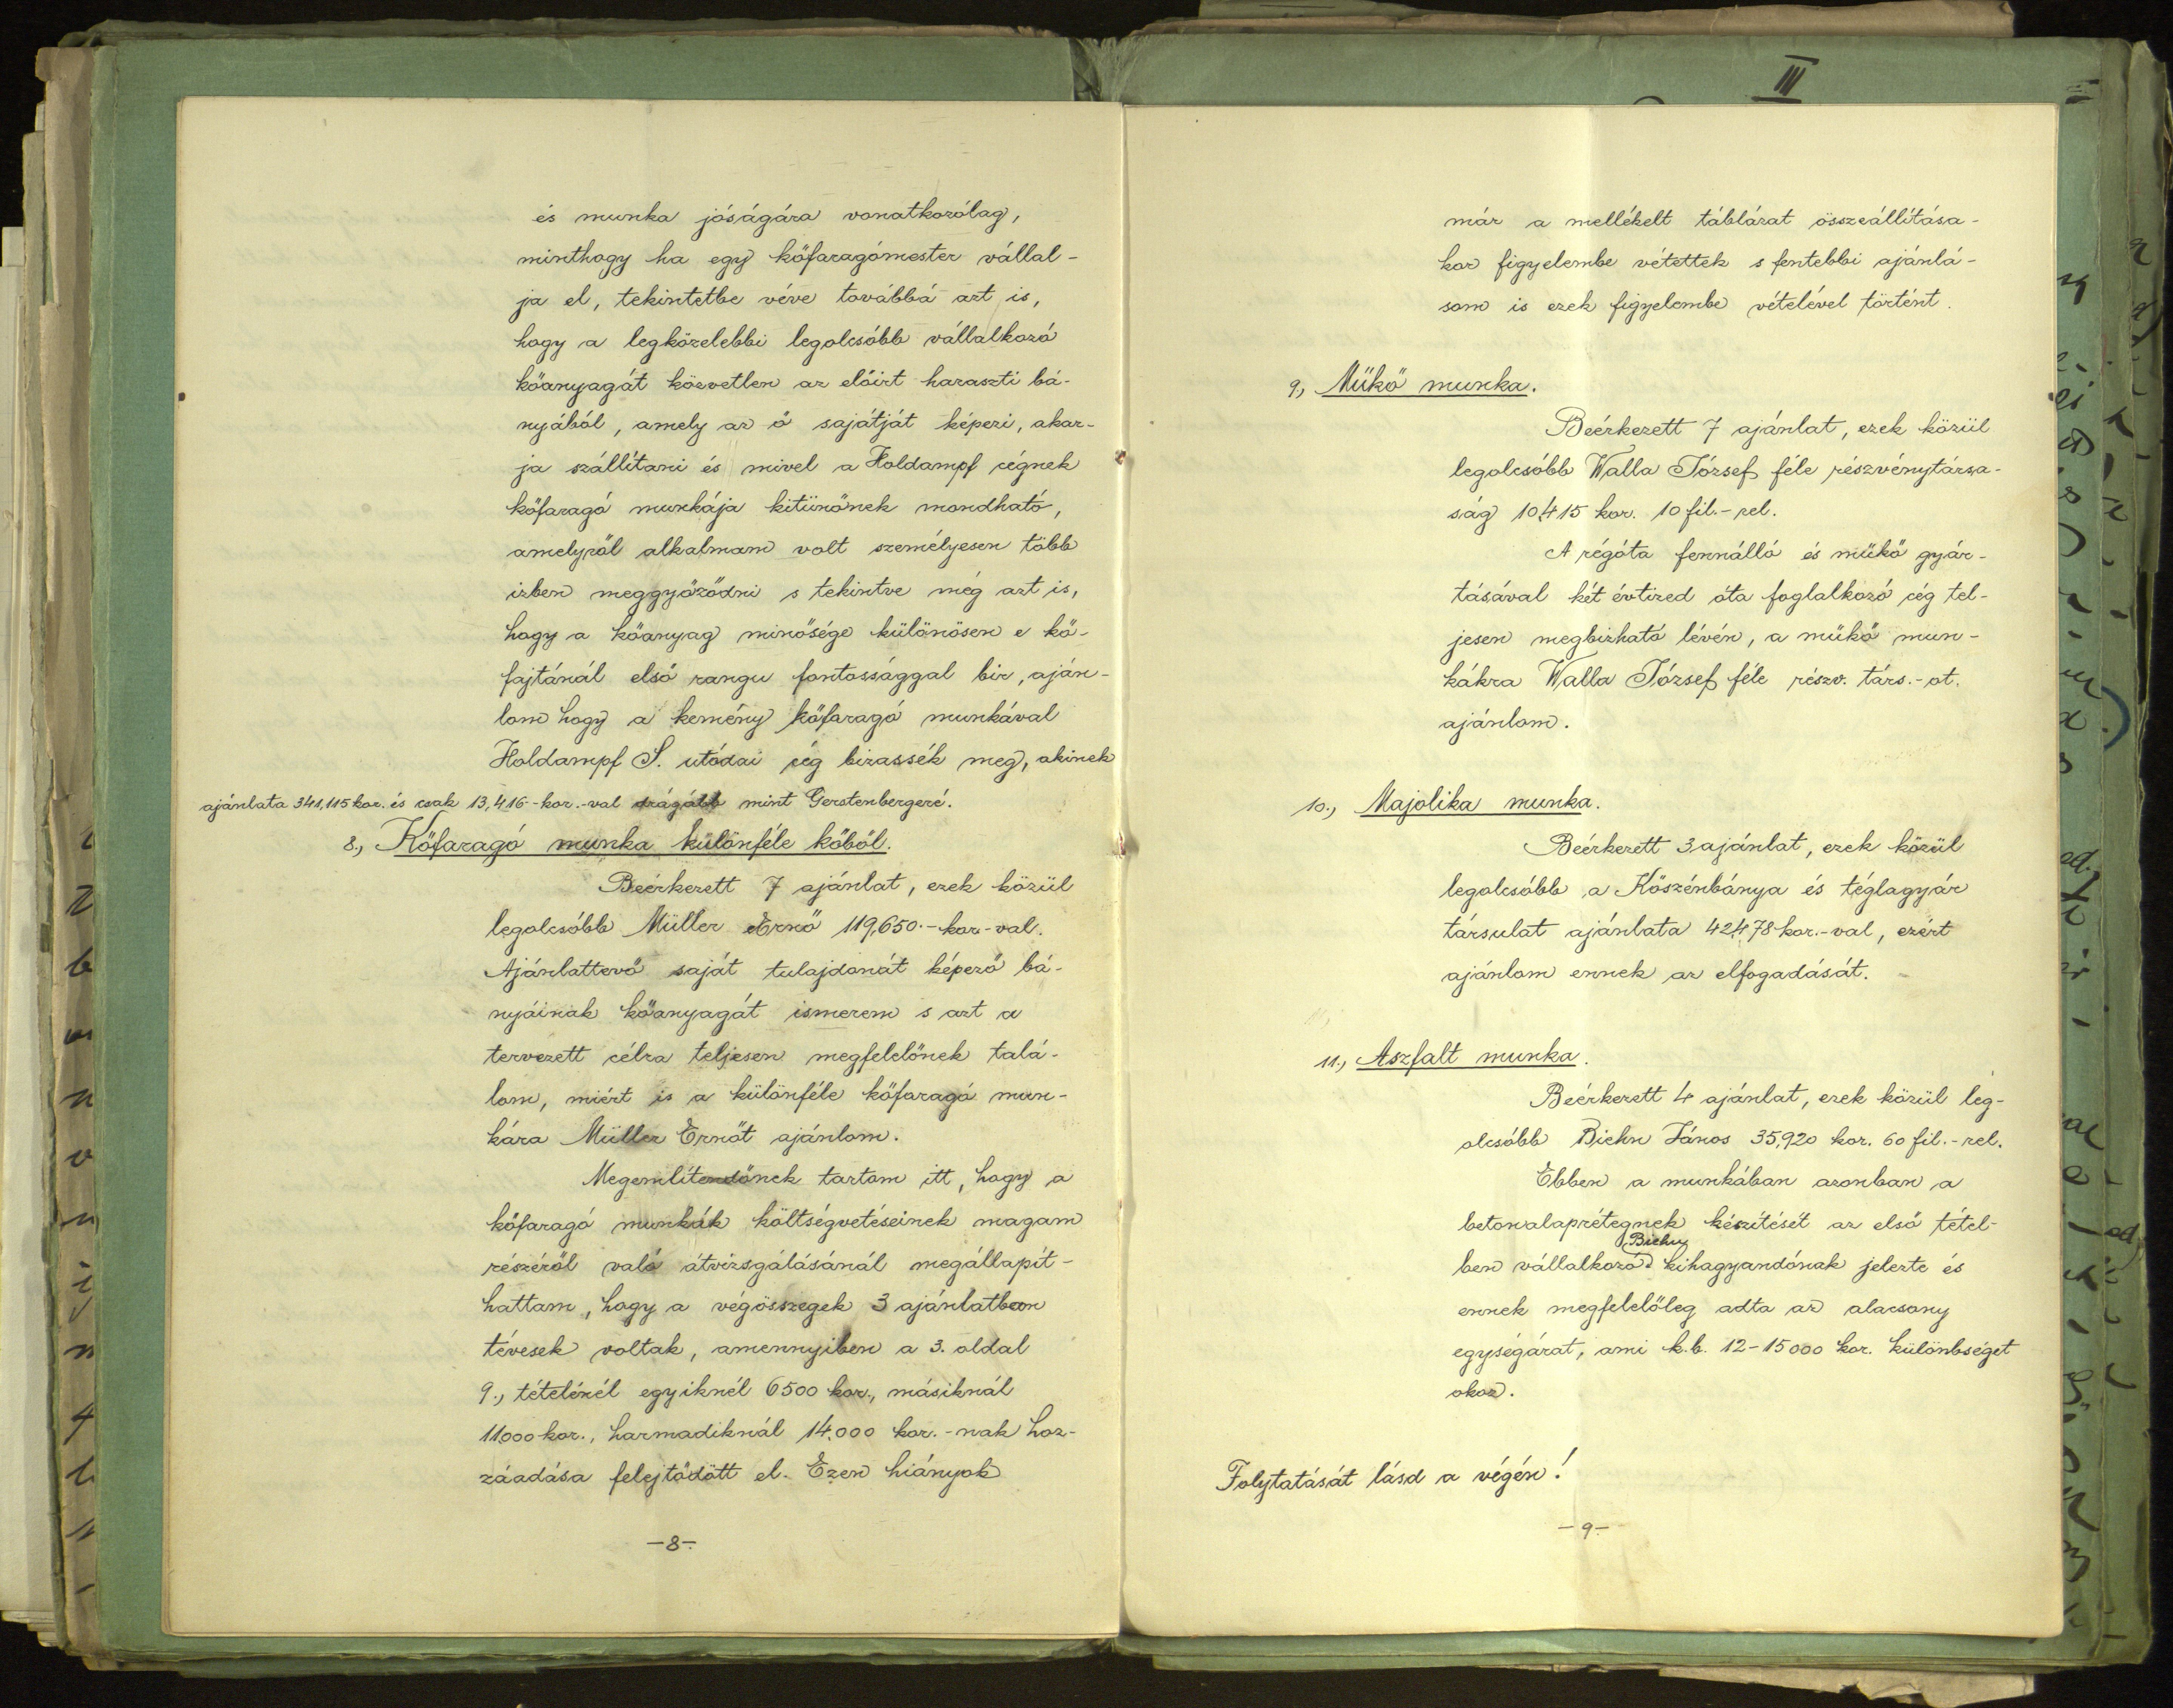 és munka jóságára vonatkozólag,
minthogy ha egy kőfaragómester vállal-
ja el, tekintetbe véve továbbá azt is,
hogy a legközelebbi legolcsóbb vállalkozó
kőanyagát közvetlen az előirt haraszti bá-
nyából, amely az ő sajátját képezi, akar-
ja szállítani és mivel a Holdampf cégnek
kőfaragó munkája kitünőnek mondható,
amelyről alkalmam volt személyesen több
izben meggyőződni s tekintve még azt is,
hogy a kőanyag minősége különösen e kő-
fajtánál első rangu fontossággal bir, aján-
lom hogy a kemény kőfaragó munkával
Holdampf S. utódai cég bizassék meg, akinek
ajánlata 341,115 kor. és csak 13,416.-kor.-val drágább mint Gerstenbergeré.
8., Kőfaragó munka különféle kőből.
Beérkezett 7 ajánlat, ezek közül
legolcsóbb Müller Ernő 119,650.-kor-val.
Ajánlattevő saját tulajdonát képező bá-
nyáinak kőanyagát ismerem s azt a
tervezett célra teljesen megfelelőnek talá-
lom, miért is a különféle kőfaragó mun-
kára Müller Ernőt ajánlom.
Megemlítendőnek tartom itt, hogy a
kőfaragó munkák költségvetéseinek magam
részéről való átvizsgálásánál megállapít-
hattam, hogy a végösszegek 3 ajánlatban
tévesek voltak, amennyiben a 3. oldal
9., tételénél egyiknél 6500 kor., másiknál
11000 kor., harmadiknál 14.000 kor.-nak hoz-
záadása felejtődött el. Ezen hiányok
-8-.
III
már a mellékelt táblázat összeállítása-
kor figyelembe vétettek s fentebbi ajánlá-
som is ezek figyelembe vételével történt.
9., Műkő munka.
Beérkezett 7 ajánlat, ezek közül
legolcsóbb Walla József féle részvénytársa-
ság 10,415 kor. 10 fil.-rel.
A régóta fennálló és műkő gyár-
tásával két évtized óta foglalkozó cég tel-
jesen megbizható lévén, a műkő mun-
kákra Walla József féle részv. társ.-ot.
ajánlom.
10., Majolika munka.
Beérkezett 3 ajánlat, ezek közül
legolcsóbb a Kőszénbánya és téglagyár
társulat ajánlata 42,478 kor.-val, ezért
ajánlom ennek az elfogadását.
11., Aszfalt munka.
Beérkezett 4 ajánlat, ezek közül leg-
olcsóbb Biehn János 35,920 kor. 60 fil.-rel.
Ebben a munkában azonban a
betonalaprétegnek készítését az első tétel-
Biehn
ben vállalkozó kihagyandónak jelezte és
ennek megfelelőleg adta az alacsony
egységárat, ami k.b. 12-15000 kor. különbséget
okoz.
Folytatását lásd a végén!
-9-